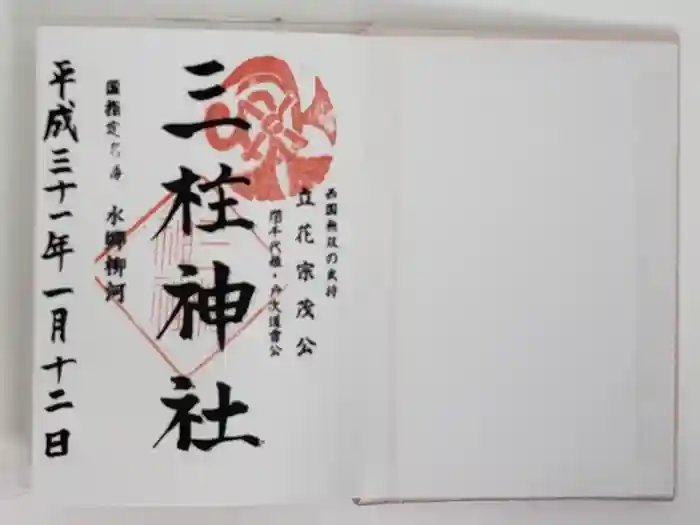 西国無双の武将
立花宗茂公
誾千代姫・戸次道雪公
三柱神社
国指定名勝 水郷柳河
平成三十一年一月十二日